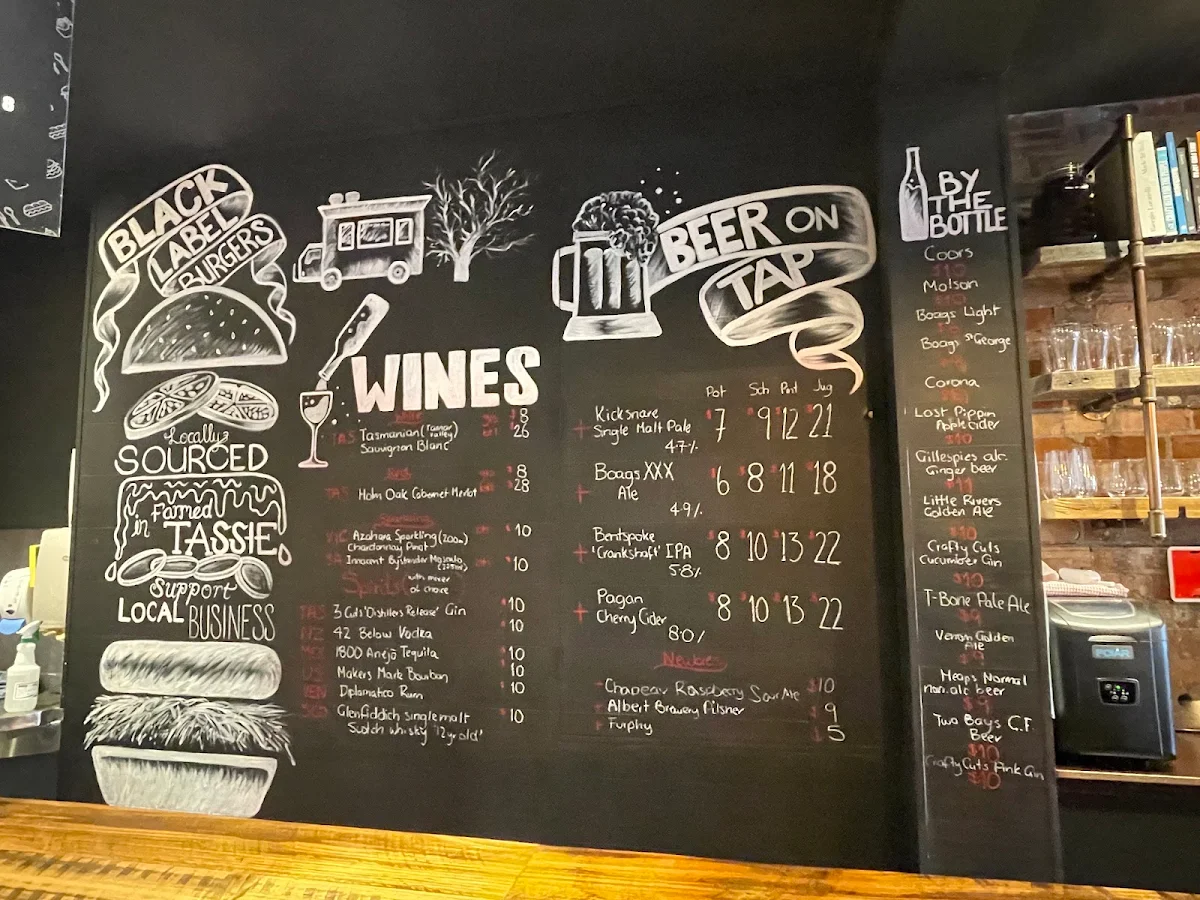 BLACK
LABEL
BURGERS
Locally
SOURCED
Famed
in TASSIE
Support
LOCAL BUSINESS
WINES
$8
TAS Tasmanian (Tamar Valley) 26
Sauvignon Blanc
Red $8
TAS Holm Oak Cabernet Merlot 28
Sparkling
VIC Azahara Sparkling (200ml) $10
Chardonnay Pinot
Innocent Bystander Moscato $10
Spirits with mixer
of choice
TAS 3 Cuts 'Distillers Release' Gin $10
NZ 42 Below Vodka $10
MEX 1800 Anejo Tequila $10
US Makers Mark Bourbon $10
VEN Diplomatico Rum $10
SCO Glenfiddich single malt $10
Scotch whisky '12yr old'
BEER ON
TAP
Pot Sch Pint Jug
Kicksnare
Single Malt Pale $7 $9 $12 $21
4.7%
Boags XXX
Ale $6 $8 $11 $18
4.9%
Bentspoke
'Crankshaft' IPA $8 $10 $13 $22
5.8%
Pagan
Cherry Cider $8 $10 $13 $22
8.0%
Newbies
Chapeau Raspberry Sour Ale $10
Albert Brewery Pilsner $9
Furphy $5
BY
THE
BOTTLE
Coors
$10
Molson
$10
Boags Light
Boags St George
Corona
Lost Pippin
Apple cider
$10
Gillespies alc.
Ginger beer
$11
Little Rivers
Golden Ale
$10
Crafty Cuts
Cucumber Gin
$10
T-Bone Pale Ale
$9
Golden
Ale
$9
Heaps Normal
non.alc beer
$9
Two Bays G.F.
Beer
$10
Crafty Cuts Pink Gin
$10
POLAR